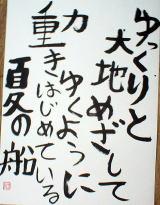 ゆっくりと
大地めざして
ゆくように
動きはじめている
夏の船